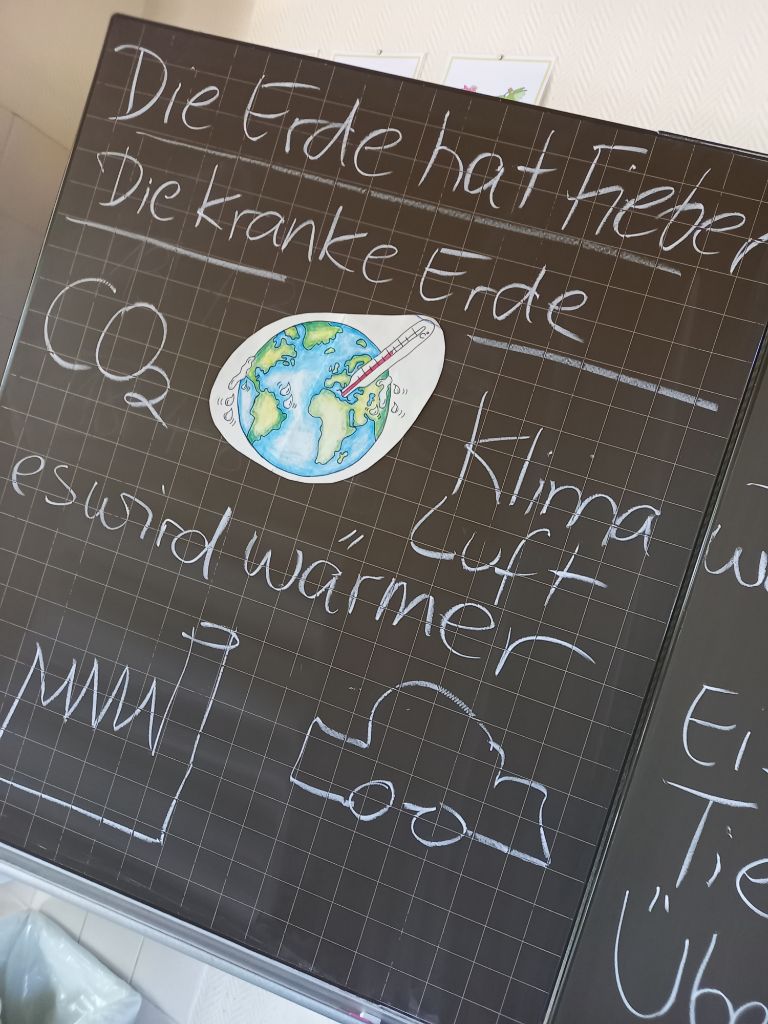 Die Erde hat Fieber
Die kranke Erde
CO2
Klima
Luft
es wird wärmer